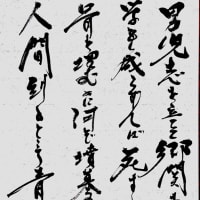 男児志を立て郷関を
学もし成らざれば死す
骨を埋む何ぞ墳墓
人間到るところ青